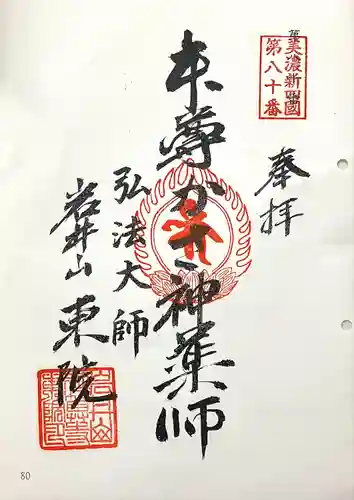 美濃新四國
第八十番
奉拝
本尊かさ神薬師
弘法大師
岩井山 東院
80